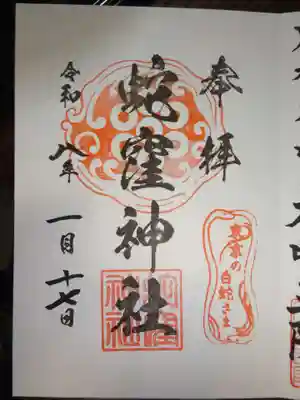 奉拝
東京の
白蛇さま
蛇窪神社
蛇窪
神社
令和八年
一月十七日